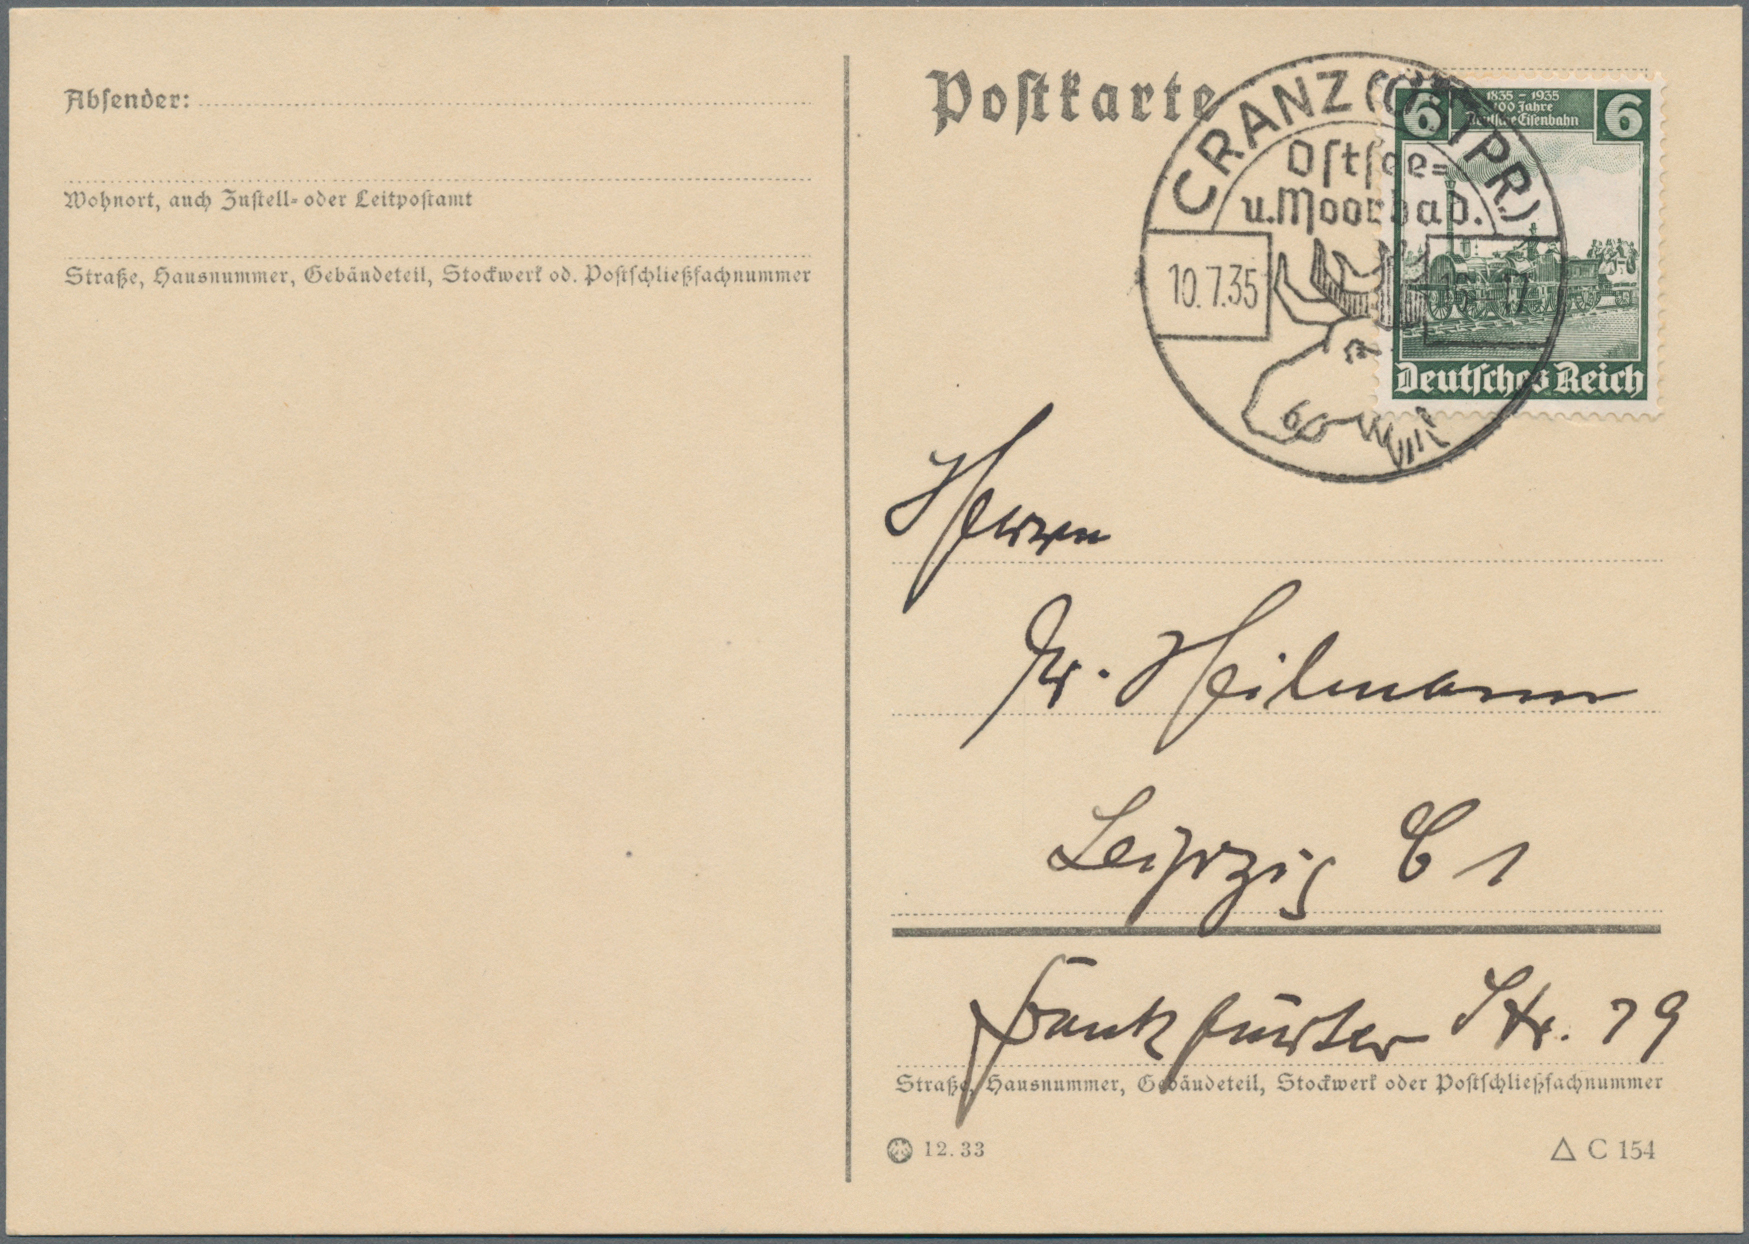 Absender:
Wohnort, auch Zustell- oder Leitpostamt
Straße, Hausnummer, Gebäudeteil, Stockwerk od. Postschließfachnummer
Postkarte
CRANZ (OSTPR)
Ostsee=
u. Moorbad.
10.7.35
16 - 17
6
1835 - 1935
100 Jahre
Deutsche Eisenbahn
6
Deutsches Reich
Herrn
Dr. Heilmann
Leipzig C 1
Frankfurter Str. 79
Straße, Hausnummer, Gebäudeteil, Stockwerk oder Postschließfachnummer
12. 33
△ C 154